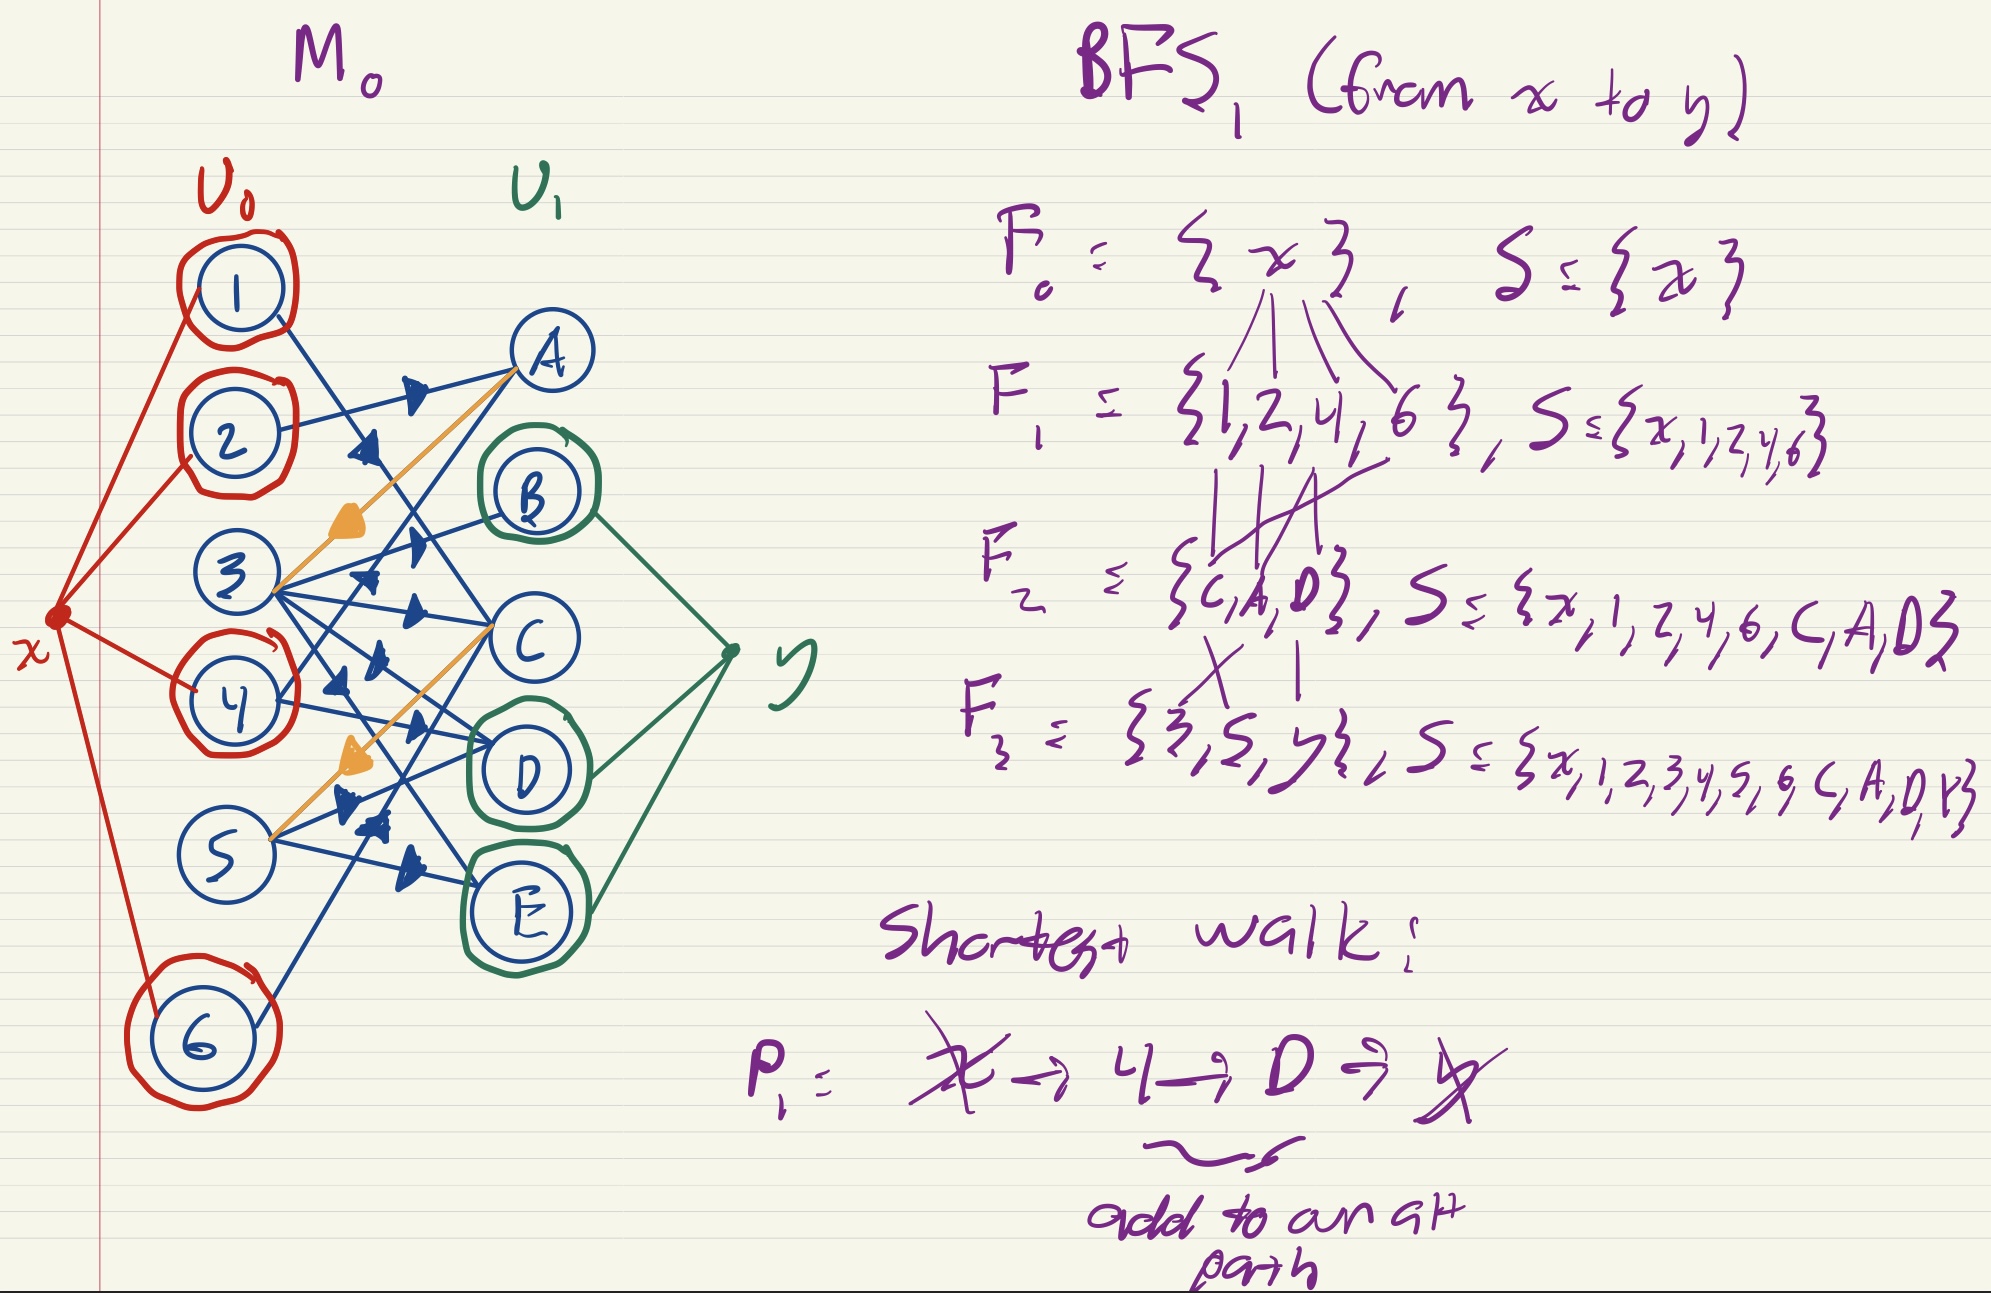 M₀
U₀ U₁
1
2
3
4
5
6
A
B
C
D
E
x
y
BFS₁ (from x to y)
F₀ = { x }, S = { x }
F₁ = {1, 2, 4, 6}, S = {x, 1, 2, 4, 6}
F₂ = {C, A, D}, S = {x, 1, 2, 4, 6, C, A, D}
F₃ = {3, 5, y}, S = {x, 1, 2, 3, 4, 5, 6, C, A, D, Y}
Shortest walk:
P₁ = x → 4 → D → y
add to an alt
path